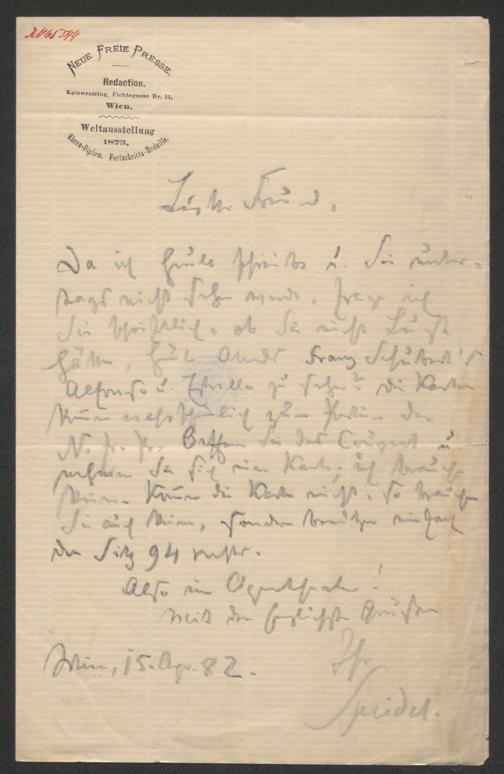 214654
NEUE FREIE PRESSE.
Redaction.
Kolowratring, Fichtegasse Nr. 11,
Wien.
Weltausstellung
1873.
Ehren-Diplom. Fortschritts-Medaille.
Liebster Freund.
Da ich heute schreibe u. Sie unter-
tags nicht sehen werde, frage ich
Sie schriftlich, ob Sie nicht Lust
hätten, heute Abends Franz Schubert's
Alfonso u. Estrella zu sehen? Die Karten
kommen wahrscheinlich zum Portier der
N. Fr. Pr. Oeffnen Sie das Couvert u.
nehmen Sie sich eine Karte; ich brauche
keine. Kommen die Karten nicht, so brauchen
Sie auch keine, sondern benützen einfach
den Sitz 94 rechts.
Also im Operntheater!
Mit den herzlichsten Grüßen
Wien, 15. Apr. 82.
Ihr
Speidel.